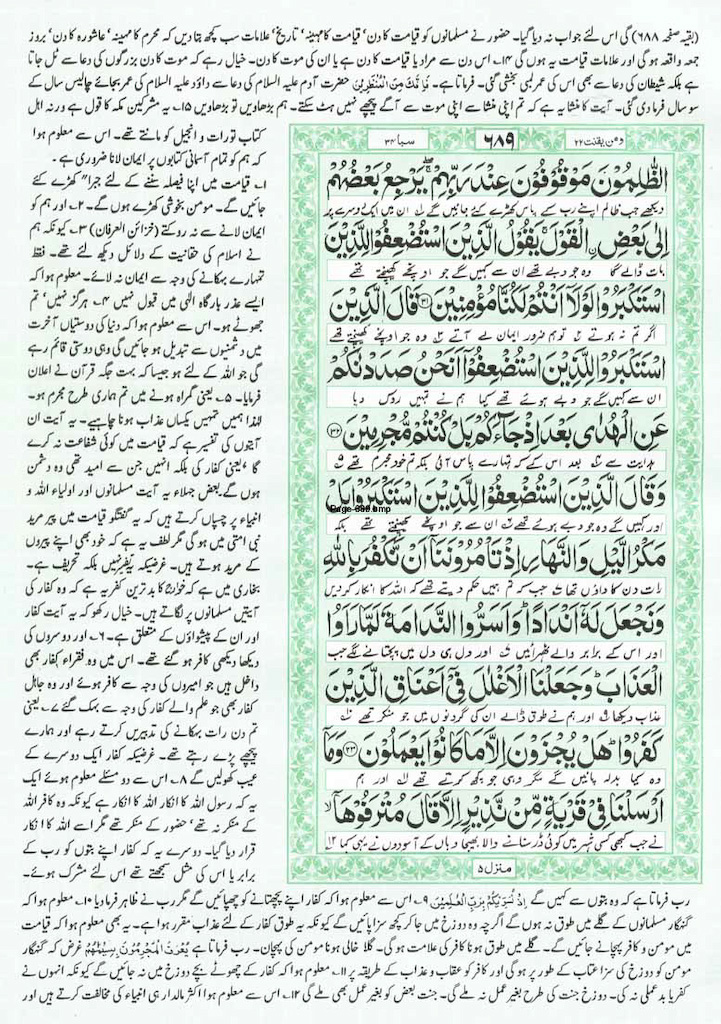 (بقیہ صفحہ ۶۸۸) گی اس لئے جواب نہ دیا گیا۔ حضور نے مسلمانوں کو قیامت کا دن' قیامت کا مہینہ' تاریخ' علامات سب کچھ بتا دیں کہ محرم کا مہینہ' عاشورہ کا دن' بروز
جمعہ واقعہ ہو گی اور علامات قیامت یہ ہوں گی ۱۴۔ اس دن سے مراد یا قیامت کا دن ہے یا ان کی موت کا دن۔ خیال رہے کہ موت کا دن بزرگوں کی دعا سے ٹل جاتا
ہے بلکہ شیطان کی دعا سے بھی اس کی عمر لمبی بخشی گئی۔ فرماتا ہے۔ فَاِنَّكَ مِنَ الْمُنْظَرِيْنَ حضرت آدم علیہ السلام کی دعا سے داؤد علیہ السلام کی عمر بجائے چالیس سال کے
سو سال فرما دی گئی۔ آیت کا منشا یہ ہے کہ تم اپنی منشا سے اپنی موت سے آگے پیچھے نہیں ہٹ سکتے۔ ہم بڑھاویں تو بڑھاویں ۱۵۔ یہ مشرکین مکہ کا قول ہے ورنہ اہل
کتاب تو رات و انجیل کو مانتے تھے۔ اس سے معلوم ہوا
کہ ہم کو تمام آسمانی کتابوں پر ایمان لانا ضروری ہے۔
۱۔ قیامت میں اپنا فیصلہ سننے کے لئے جبراً کھڑے کئے
جائیں گے۔ مومن بخوشی کھڑے ہوں گے۔ ۲۔ اور ہم کو
ایمان لانے سے نہ روکتے (خزائن العرفان) ۳۔ کیونکہ ہم
نے اسلام کی حقانیت کے دلائل دیکھ لئے تھے۔ فقط
تمہارے بہکانے کی وجہ سے ایمان نہ لائے۔ معلوم ہوا کہ
ایسے عذر بارگاہ الٰہی میں قبول نہیں ۴۔ ہرگز نہیں' تم
جھوٹے ہو۔ اس سے معلوم ہوا کہ دنیا کی دوستیاں آخرت
میں دشمنوں سے تبدیل ہو جائیں گی وہی دوستی قائم رہے
گی جو اللہ کے لئے ہو جیسا کہ بہت جگہ قرآن نے اعلان
فرمایا۔ ۵۔ یعنی گمراہ ہونے میں تم ہماری طرح مجرم ہو۔
لہٰذا ہمیں تمہیں یکساں عذاب ہونا چاہیے۔ یہ آیت ان
آیتوں کی تفسیر ہے کہ قیامت میں کوئی شفاعت نہ کرے
گا' یعنی کفار کی بلکہ انہیں جن سے امید تھی وہ دشمن
ہوں گے۔ بعض جہلاء یہ آیت مسلمانوں اور اولیاء اللہ و
انبیاء پر چسپاں کرتے ہیں کہ یہ گفتگو قیامت میں پیر مرید
نبی امتی میں ہو گی مگر لطف یہ ہے کہ خود بھی اپنے پیروں
کے مرید ہوتے ہیں۔ غرضیکہ یہ تفسیر نہیں بلکہ تحریف ہے۔
بخاری میں ہے کہ خوارج کا بدترین کفر یہ ہے کہ وہ کفار کی
آیتیں مسلمانوں پر لگاتے ہیں۔ خیال رکھو کہ یہ آیت کفار
اور ان کے پیشواؤں کے متعلق ہے۔ ۶۔ اور دوسروں کی
دیکھا دیکھی کافر ہو گئے تھے۔ اس میں وہ فقراء کفار بھی
داخل ہیں جو امیروں کی وجہ سے کافر ہوئے اور وہ جاہل
کفار بھی جو علم والے کفار کی وجہ سے بہک گئے ۷۔ یعنی
تم دن رات بہکانے کی تدبیریں کرتے رہے اور ہمارے
پیچھے پڑے رہتے تھے۔ غرضیکہ کفار ایک دوسرے کے
عیب کھولیں گے ۸۔ اس سے دو مسئلے معلوم ہوئے ایک
یہ کہ رسول اللہ کا انکار اللہ کا انکار ہے کیونکہ وہ کافر اللہ
کے منکر نہ تھے' حضور کے منکر تھے مگر اسے اللہ کا انکار
قرار دیا گیا۔ دوسرے یہ کہ کفار اپنے بتوں کو رب کے
برابر یا اس کی مثل سمجھتے تھے اس لئے مشرک ہوئے۔
ومن یقنت ۲۲
۶۸۹
سبا ۳۴
الظّٰلِمُوْنَ مَوْقُوْفُوْنَ عِنْدَ رَبِّهِمْ ۖۚ يَرْجِعُ بَعْضُهُمْ
دیکھے جب ظالم اپنے رب کے پاس کھڑے کئے جائیں گے ان میں ایک دوسرے پر
اِلٰى بَعْضِ ِۨالْقَوْلَ ۚ يَقُوْلُ الَّذِيْنَ اسْتُضْعِفُوْا لِلَّذِيْنَ
بات ڈالے گا وہ جو دبے تھے ان سے کہیں گے جو اونچے کھینچتے تھے
اسْتَكْبَرُوْا لَوْلَاۤ اَنْتُمْ لَكُنَّا مُؤْمِنِيْنَ ۝۳۱ قَالَ الَّذِيْنَ
اگر تم نہ ہوتے تو ہم ضرور ایمان لے آتے وہ جو اونچے کھینچتے تھے
اسْتَكْبَرُوْا لِلَّذِيْنَ اسْتُضْعِفُوْۤا اَنَحْنُ صَدَدْنٰكُمْ
ان سے کہیں گے جو دبے ہوئے تھے کیا ہم نے تمہیں روک دیا
عَنِ الْهُدٰى بَعْدَ اِذْ جَآءَكُمْ بَلْ كُنْتُمْ مُّجْرِمِيْنَ ۝۳۲
ہدایت سے بعد اس کے کہ تمہارے پاس آئی بلکہ تم خود مجرم تھے
وَ قَالَ الَّذِيْنَ اسْتُضْعِفُوْا لِلَّذِيْنَ اسْتَكْبَرُوْا بَلْ
Page-689.bmp
اور کہیں گے وہ جو دبے ہوئے تھے ان سے جو اونچے کھینچتے تھے بلکہ
مَكْرُ الَّيْلِ وَ النَّهَارِ اِذْ تَاْمُرُوْنَنَاۤ اَنْ نَّكْفُرَ بِاللّٰهِ
رات دن کا داؤں تھا جب کہ تم ہمیں حکم دیتے تھے کہ اللہ کا انکار کر دیں
وَ نَجْعَلَ لَهٗۤ اَنْدَادًا ؕ وَ اَسَرُّوا النَّدَامَةَ لَمَّا رَاَوُا
اور اس کے برابر والے ٹھہرائیں اور دل ہی دل میں پچھتانے لگے جب
الْعَذَابَ ؕ وَ جَعَلْنَا الْاَغْلٰلَ فِيْۤ اَعْنَاقِ الَّذِيْنَ
عذاب دیکھا اور ہم نے طوق ڈالے ان کی گردنوں میں جو منکر تھے
كَفَرُوْا ؕ هَلْ يُجْزَوْنَ اِلَّا مَا كَانُوْا يَعْمَلُوْنَ ۝۳۳ وَ مَاۤ
وہ کیا بدلہ پائیں گے مگر وہی جو کچھ کرتے تھے اور ہم
اَرْسَلْنَا فِيْ قَرْيَةٍ مِّنْ نَّذِيْرٍ اِلَّا قَالَ مُتْرَفُوْهَاۤ ۙ
نے جب کبھی کسی شہر میں کوئی ڈر سنانے والا بھیجا وہاں کے آسودوں نے یہی کہا
منزل ۵
رب فرماتا ہے کہ وہ بتوں سے کہیں گے اِذْ نُسَوِّيْكُمْ بِرَبِّ الْعٰلَمِيْنَ ۹۔ اس سے معلوم ہوا کہ کفار اپنے پچھتانے کو چھپائیں گے مگر رب نے ظاہر فرما دیا ۱۰۔ معلوم ہوا کہ
گنہگار مسلمانوں کے گلے میں طوق نہ ہوں گے اگرچہ وہ دوزخ میں جا کر کچھ سزا پائیں گے کیونکہ یہ طوق کفار کے لئے عذاب مقرر ہوا ہے۔ یہ بھی معلوم ہوا کہ قیامت
میں مومن و کافر پہچانے جائیں گے۔ گلے میں طوق ہونا کافر کی علامت ہو گی۔ گلا خالی ہونا مومن کی پہچان۔ رب فرماتا ہے يُعْرَفُ الْمُجْرِمُوْنَ بِسِيْمٰهُمْ غرض کہ گنہگار
مومن کو دوزخ کی سزا عتاب کے طور پر ہو گی اور کافر کو عقاب و عذاب کے طریقہ پر ۱۱۔ معلوم ہوا کہ کفار کے چھوٹے بچے دوزخ میں نہ جائیں گے کیونکہ انہوں نے
کفر یا بد عملی نہ کی۔ دوزخ جنت کی طرح بغیر عمل نہ ملے گی۔ جنت بعض کو بغیر عمل بھی ملے گی ۱۲۔ اس سے معلوم ہوا اکثر مالدار ہی انبیاء کی مخالفت کرتے ہیں اور